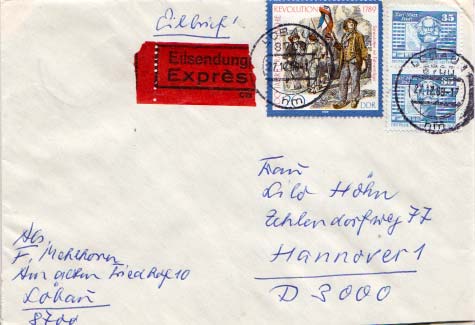 Eilbrief!
Eilsendung
Exprès
REVOLUTION 1789
DDR
35
LÖBAU 1
Frau
Lilo Höhn
Zehlendorfweg 77
Hannover 1
D 3000
Abs.
F. Mehlhorn
Am alten Friedhof 10
Löbau
8700